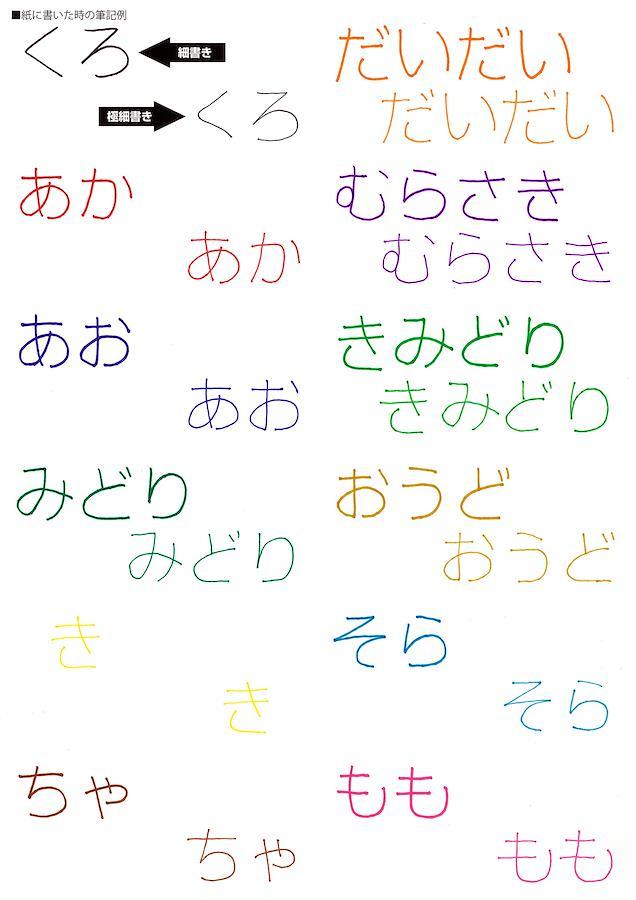 ■紙に書いた時の筆記例
くろ 細書き
極細書き くろ
あか
あか
あお
あお
みどり
みどり
き
き
ちゃ
ちゃ
だいだい
だいだい
むらさき
むらさき
きみどり
きみどり
おうど
おうど
そら
そら
もも
もも